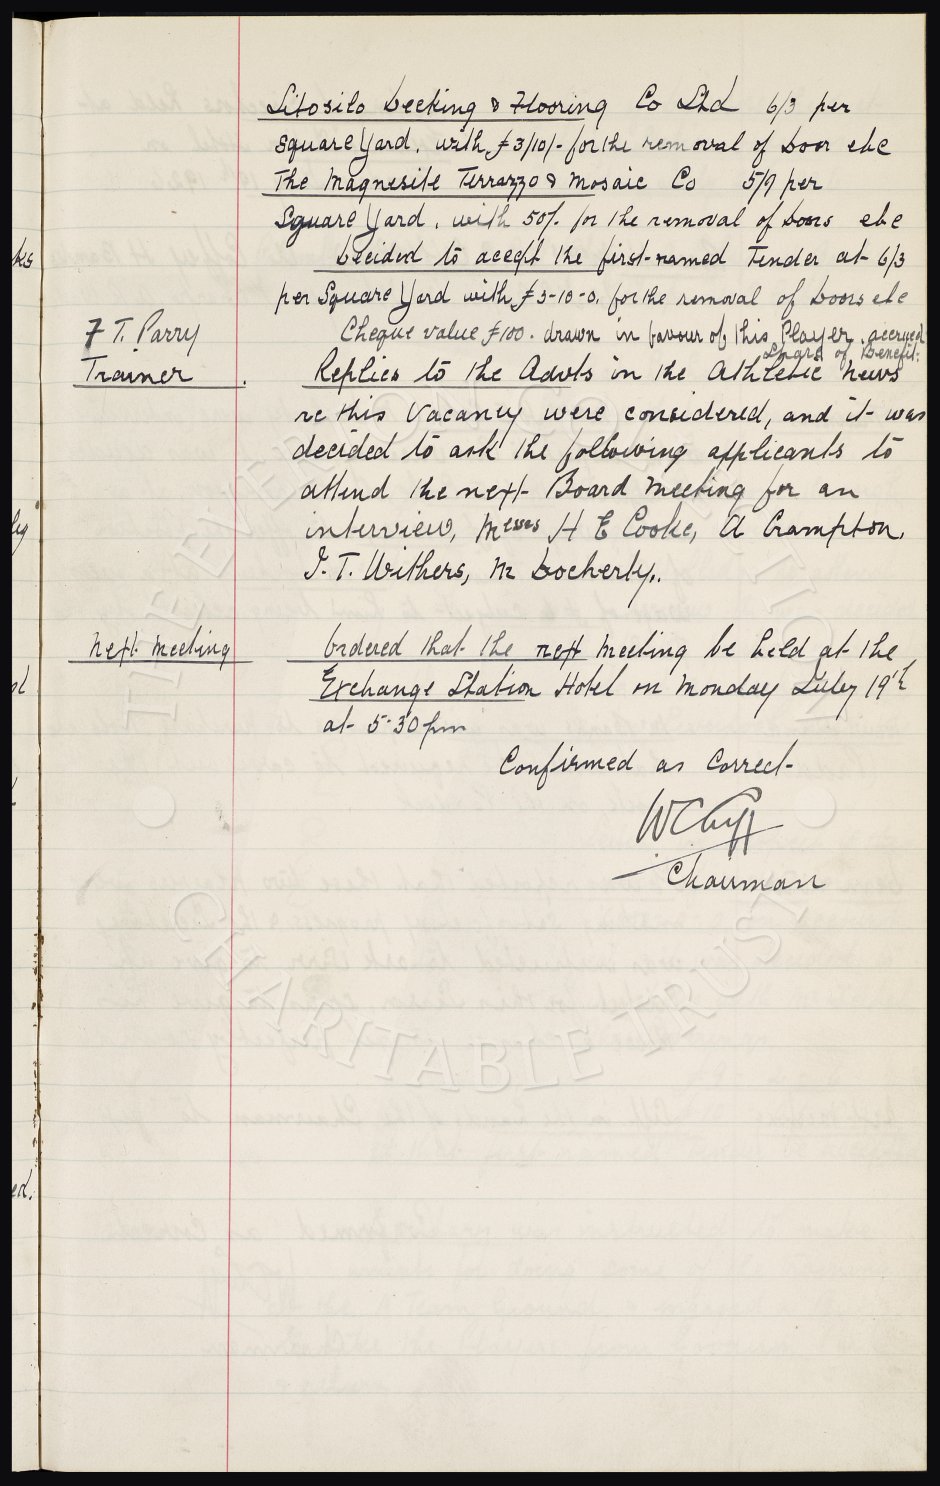 Litosilo Decking & Flooring Co Ltd 6/3 per
Square Yard, with £3/10/- for the removal of Door etc
The Magnesite Terrazzo & Mosaic Co 5/9 per
Square Yard, with 50/- for the removal of Doors etc
Decided to accept the first-named Tender at 6/3
per Square Yard with £3-10-0. for the removal of Doors etc
F T. Parry
Cheque value £100. drawn in favour of this Player. accrued
share of Benefit:
Trainer.
Replies to the Advts in the Athletic News
re this Vacancy were considered, and it was
decided to ask the following applicants to
attend the next Board Meeting for an
interview, Messrs H E Cooke, A Crampton,
J. T. Withers, M Docherty,.
Next Meeting
Ordered that the next Meeting be held at the
Exchange Station Hotel on Monday July 19th
at 5-30 pm
Confirmed as Correct-
W C Cuff
Chairman
THE EVERTON COLLECTION
CHARITABLE TRUST